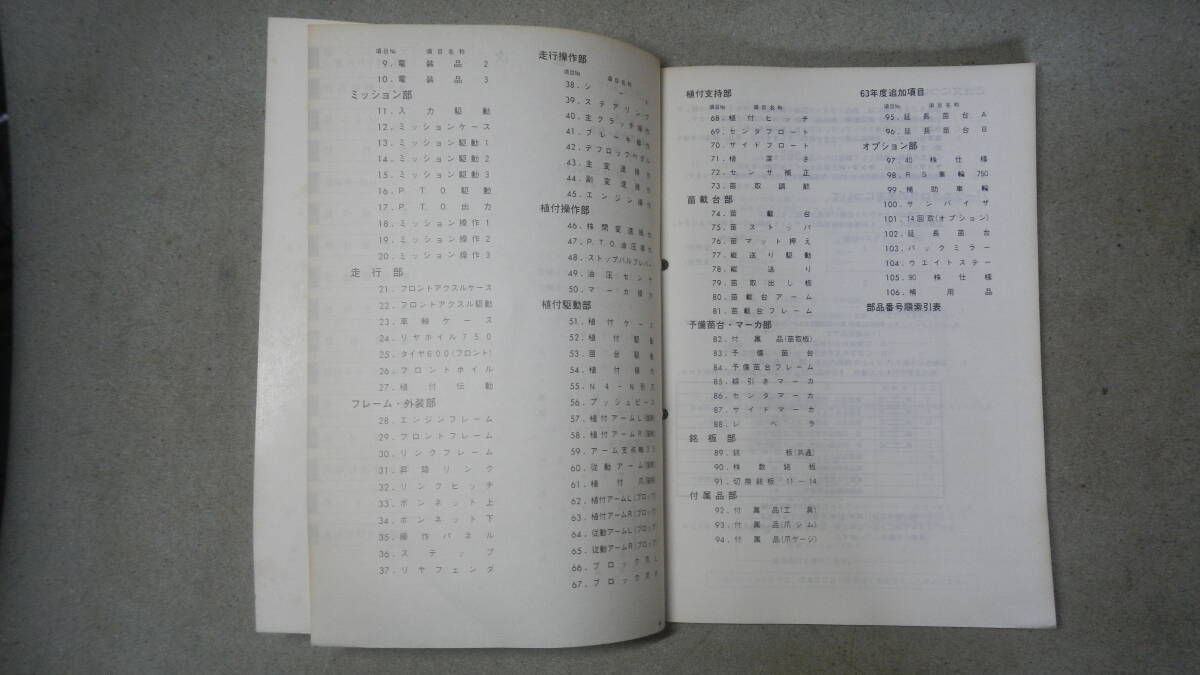 項目№ 項目名称
9. 電装品 2
10. 電装品 3
ミッション部
11. 入力駆動
12. ミッションケース
13. ミッション駆動 1
14. ミッション駆動 2
15. ミッション駆動 3
16. P.T.O.駆動
17. P.T.O.出力
18. ミッション操作 1
19. ミッション操作 2
20. ミッション操作 3
走行部
21. フロントアクスルケース
22. フロントアクスル駆動
23. 車軸ケース
24. リヤホイル750
25. タイヤ600(フロント)
26. フロントホイル
27. 植付伝動
フレーム・外装部
28. エンジンフレーム
29. フロントフレーム
30. リンクフレーム
31. 昇降リンク
32. リンクヒッチ
33. ボンネット上
34. ボンネット下
35. 操作パネル
36. ステップ
37. リヤフェンダ
走行操作部
項目№ 項目名称
38. シート
39. ステアリング
40. 主クラッチ操作
41. ブレーキ操作
42. デフロックペダル
43. 主変速操作
44. 副変速操作
45. エンジン操作
植付操作部
46. 株間変速操作
47. P.T.O.油圧操作
48. ストップバルブレバー
49. 油圧センサ
50. マーカ操作
植付駆動部
51. 植付ケース
52. 植付駆動
53. 苗台駆動
54. 植付
55. N4-N
56. プッシュピース
57. 植付アームL
58. 植付アームR
59. アーム支点軸
60. 従動アーム
61. 植付爪
62. 植付アームL(ブロック)
63. 植付アームR(ブロック)
64. 従動アームL(ブロック)
65. 従動アームR(ブロック)
66. ブロック爪L
67. ブロック爪R
植付支持部
項目№ 項目名称
68. 植付ヒッチ
69. センタフロート
70. サイドフロート
71. 植深さ
72. センサ補正
73. 苗取調節
苗載台部
74. 苗載台
75. 苗ストッパ
76. 苗マット押え
77. 縦送り駆動
78. 縦送り
79. 苗取出し板
80. 苗載台アーム
81. 苗載台フレーム
予備苗台・マーカ部
82. 付属品(苗取板)
83. 予備苗台
84. 予備苗台フレーム
85. 線引きマーカ
86. センタマーカ
87. サイドマーカ
88. レベラ
銘板部
89. 銘板(共通)
90. 株数銘板
91. 切換銘板 11-14
付属品部
92. 付属品(工具)
93. 付属品(爪シム)
94. 付属品(爪ケージ)
63年度追加項目
項目№ 項目名称
95. 延長苗台A
96. 延長苗台B
オプション部
97. 40株仕様
98. RS車輪750
99. 補助車輪
100. サンバイザ
101. 14回取(オプション)
102. 延長苗台
103. バックミラー
104. ウエイトステー
105. 90株仕様
106. 補用品
部品番号順索引表